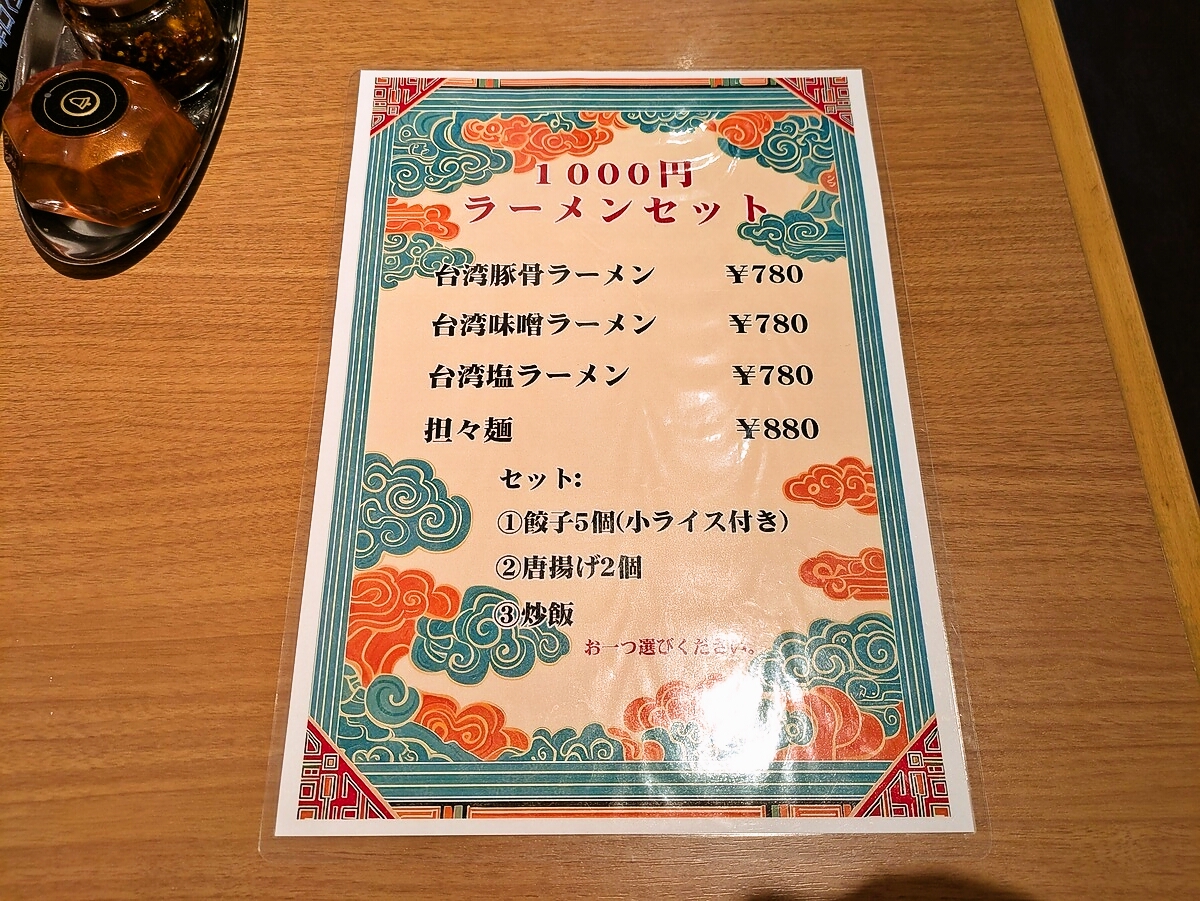 1000円
ラーメンセット
台湾豚骨ラーメン ￥780
台湾味噌ラーメン ￥780
台湾塩ラーメン ￥780
担々麺 ￥880
セット:
①餃子5個(小ライス付き)
②唐揚げ2個
③炒飯
お一つ選びください。